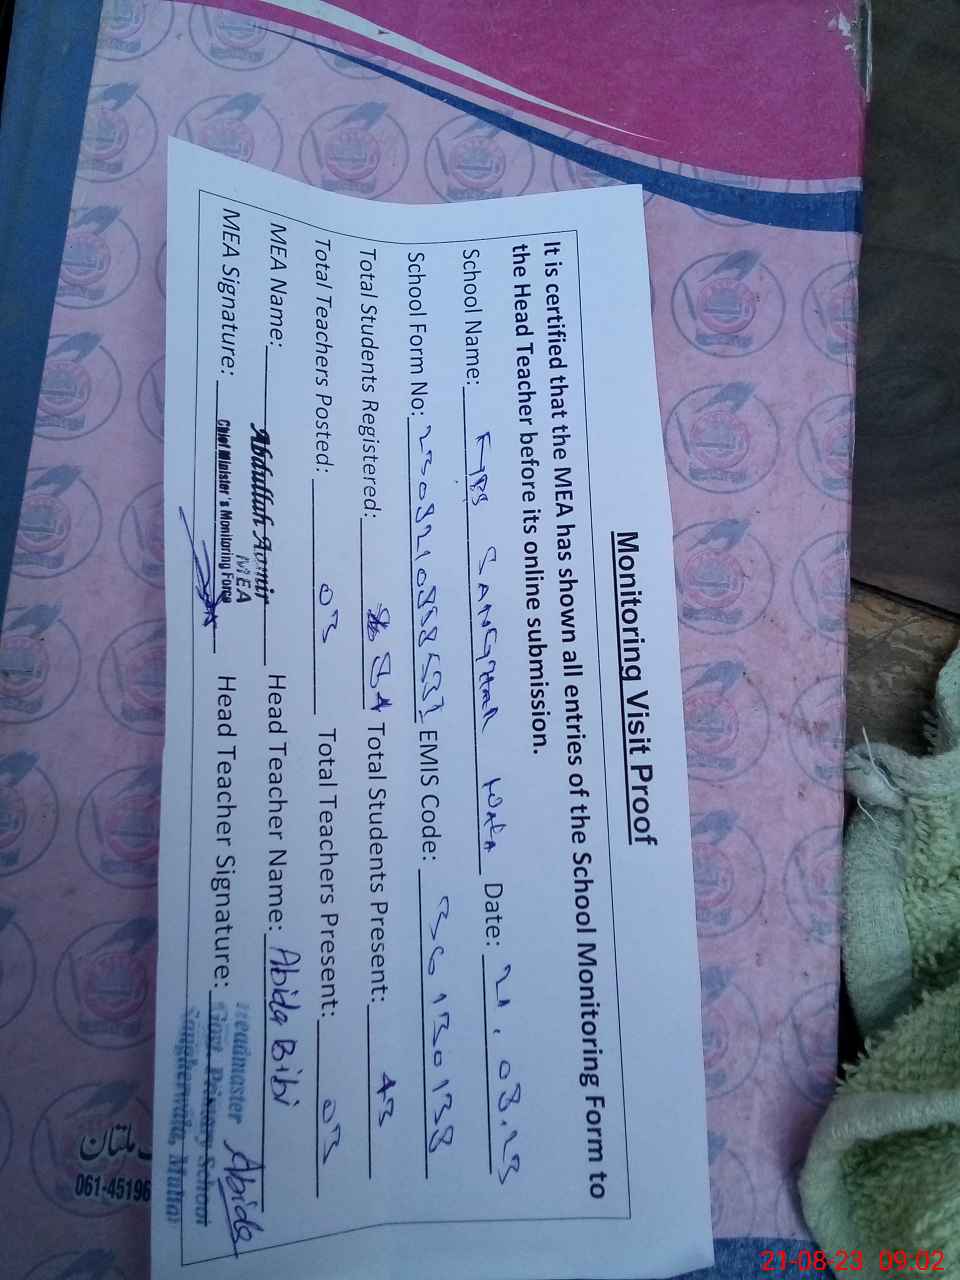 Monitoring Visit Proof
It is certified that the MEA has shown all entries of the School Monitoring Form to
the Head Teacher before its online submission.
School Name: SANGHAR WALA Date: 21.08.23
School Form No: EMIS Code: 36130138
Total Students Registered: 84 Total Students Present: 43
Total Teachers Posted: 03 Total Teachers Present: 03
MEA Name: Abdullah Aamir Head Teacher Name: Abida Bibi
MEA
MEA Signature: Chief Minister's Monitoring Force Head Teacher Signature: Abida
Headmaster
Govt Primary School
Multan
ملتان
061-45196
21-08-23 09:02